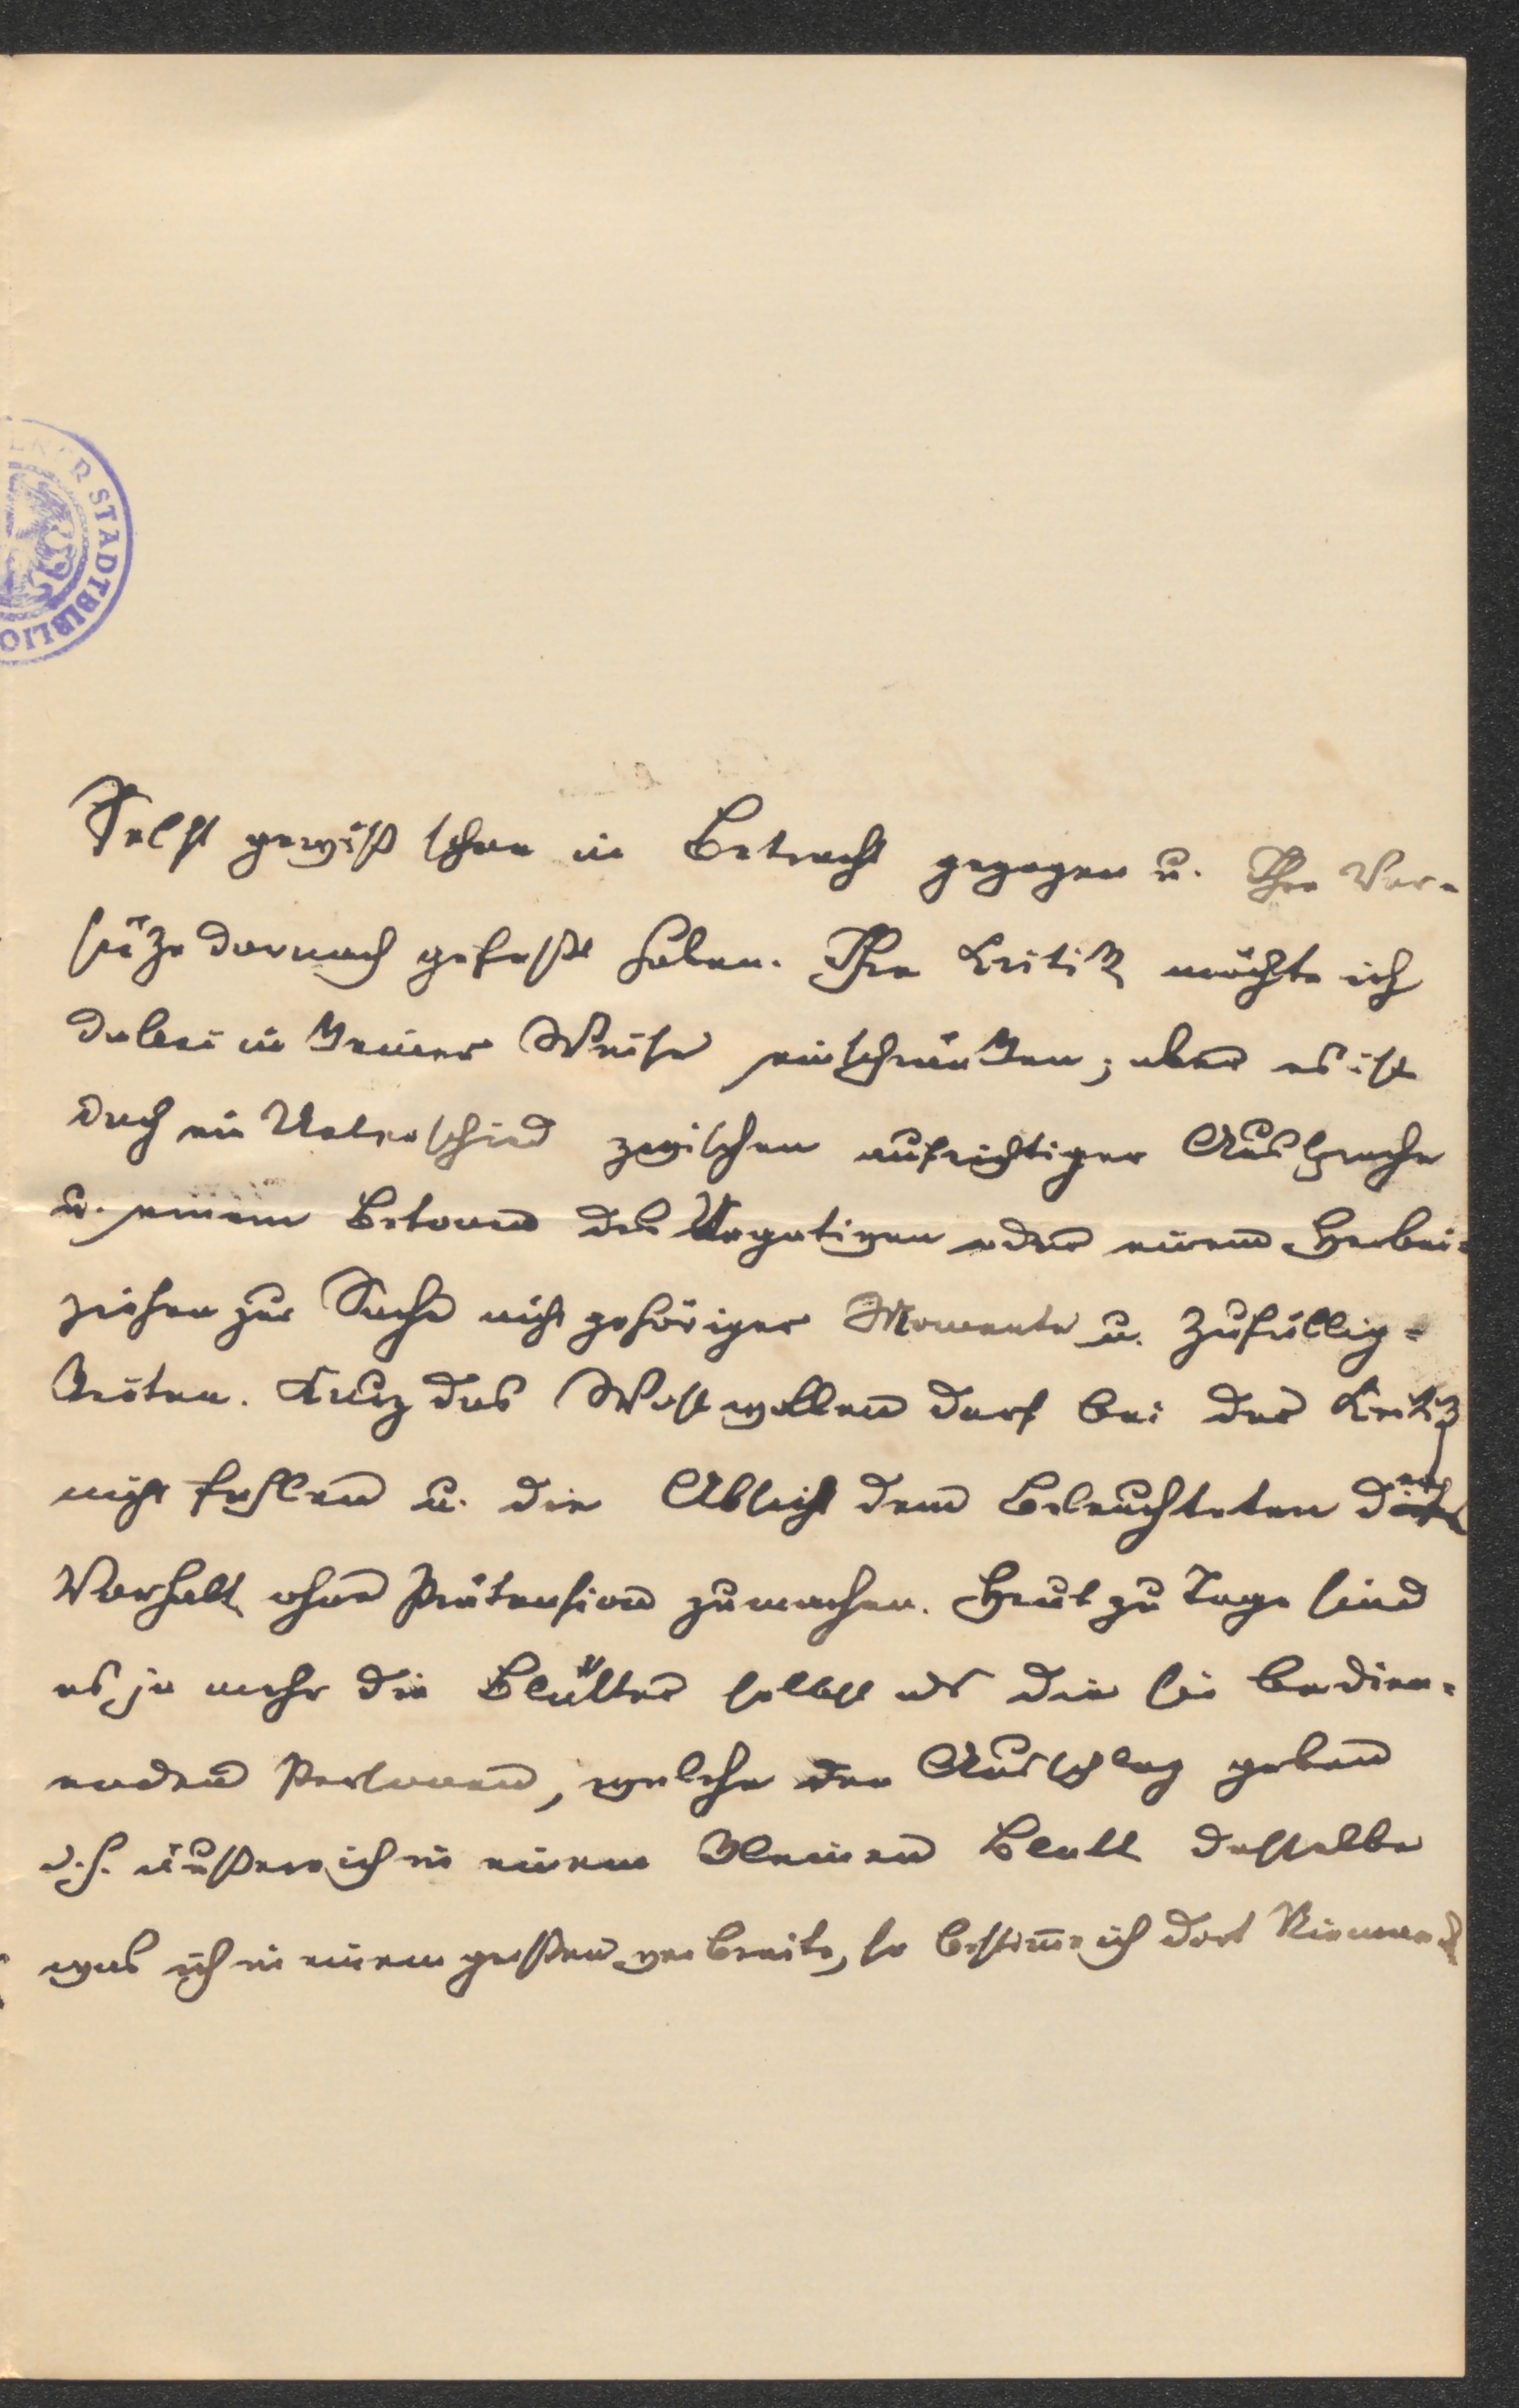 ER STADTBIBLIO
Selbst gewiß schon in Betracht gezogen u. Ihre Vor-
säze darnach gefaßt haben. Ihre Kritik möchte ich
dabei in keiner Weise einschränken; aber es ist
doch ein Unterschied zwischen aufrichtiger Aussprache
u. einem Betonen des Negativen oder einem Herbei-
ziehen zur Sache nicht gehöriger Momente u. Zufällig-
keiten. Kurz das Wohlwollen darf bei der Kritik
nicht fehlen u. die Absicht dem Beleuchteten den
Vorhalt ohne Prätension zu machen. Heut zu Tage sind
es ja mehr die Blätter selbst als die sie bedien-
enden Personen, welche den Ausschlag geben
d. h. äußere ich in einem kleinen Blatt dasselbe
was ich in einem großen verbreite, so bestimme ich dort Niemand